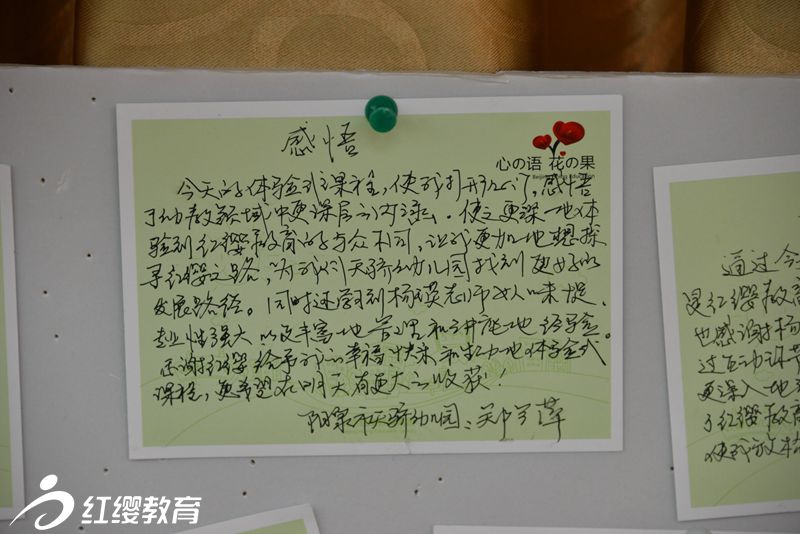 感悟
心の语 花の果
今天的体验式课程，使我打开心门，感悟
了幼教领域中更深层的内涵。使之更深一地体
验到红缨教育的与众不同，让我更加地想探
寻红缨之路，为我们天骄幼儿园找到更好的
发展路径。同时还学到杨瑛老师
专业性强大 以及丰富地 和 地 经验。
感谢红缨给予我的幸福快来和 地体验式
课程，更希望在明天有更大的收获！
阳泉市天骄幼儿园：郑 莲
通过今
灵红缨教育
也感谢杨
过互动环节
更深入地
了红缨教育
使我放
红缨教育